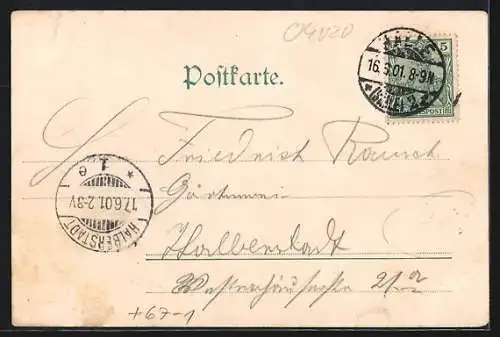 04020
Postkarte.
HALLE
16.6.01. 8-9N.
(SAALE) 2
5
Friedrich Rausch
Gärtnerei
Halberstadt
1
e
17.6.01. 2-3V
HALBERSTADT
+67-1